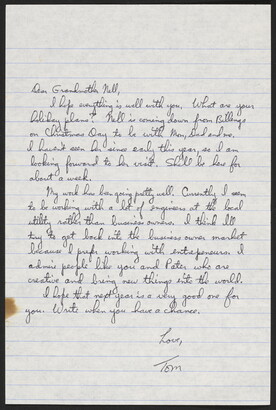 Dear Grandmother Nell,
I hope everything is well with you. What are your
holiday plans? Nell is coming down from Billings
on Christmas Day to be with Mom, Dad and me.
I haven't seen her since early this year, so I am
looking forward to her visit. She'll be here for
about a week.
My work has been going pretty well. Currently I seem
to be working with a lot of engineers at the local
utility rather than business owners. I think I'll
try to get back into the business owner market
because I prefer working with entrepreneurs. I
admire people like you and Pater who are
creative and bring new things into the world.
I hope that next year is a very good one for
you. Write when you have a chance.
Love,
Tom